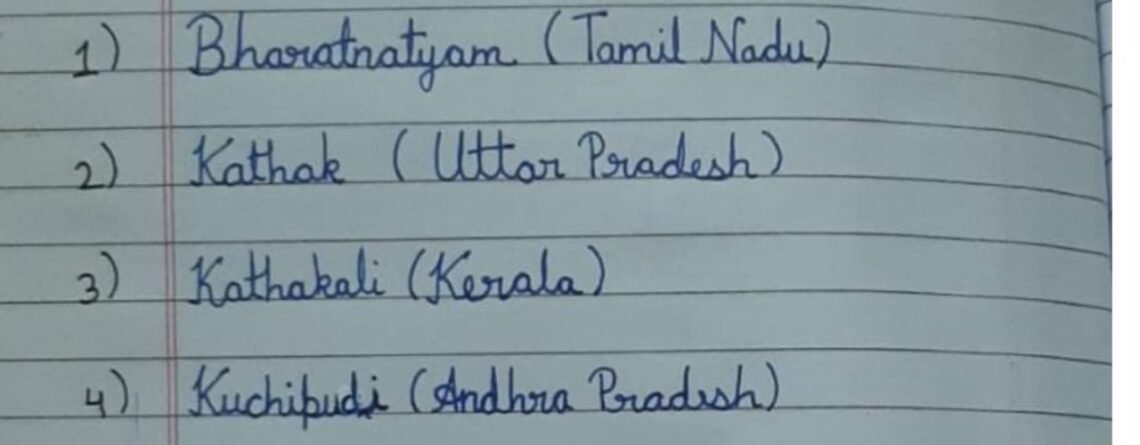 1) Bharatnatyam (Tamil Nadu)
2) Kathak (Uttar Pradesh)
3) Kathakali (Kerala)
4) Kuchipudi (Andhra Pradesh)